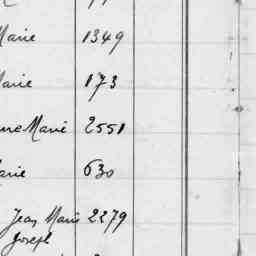 Marie 1349
Marie 173
Marie 2551
Marie 630
Jean Marie 2279
Joseph